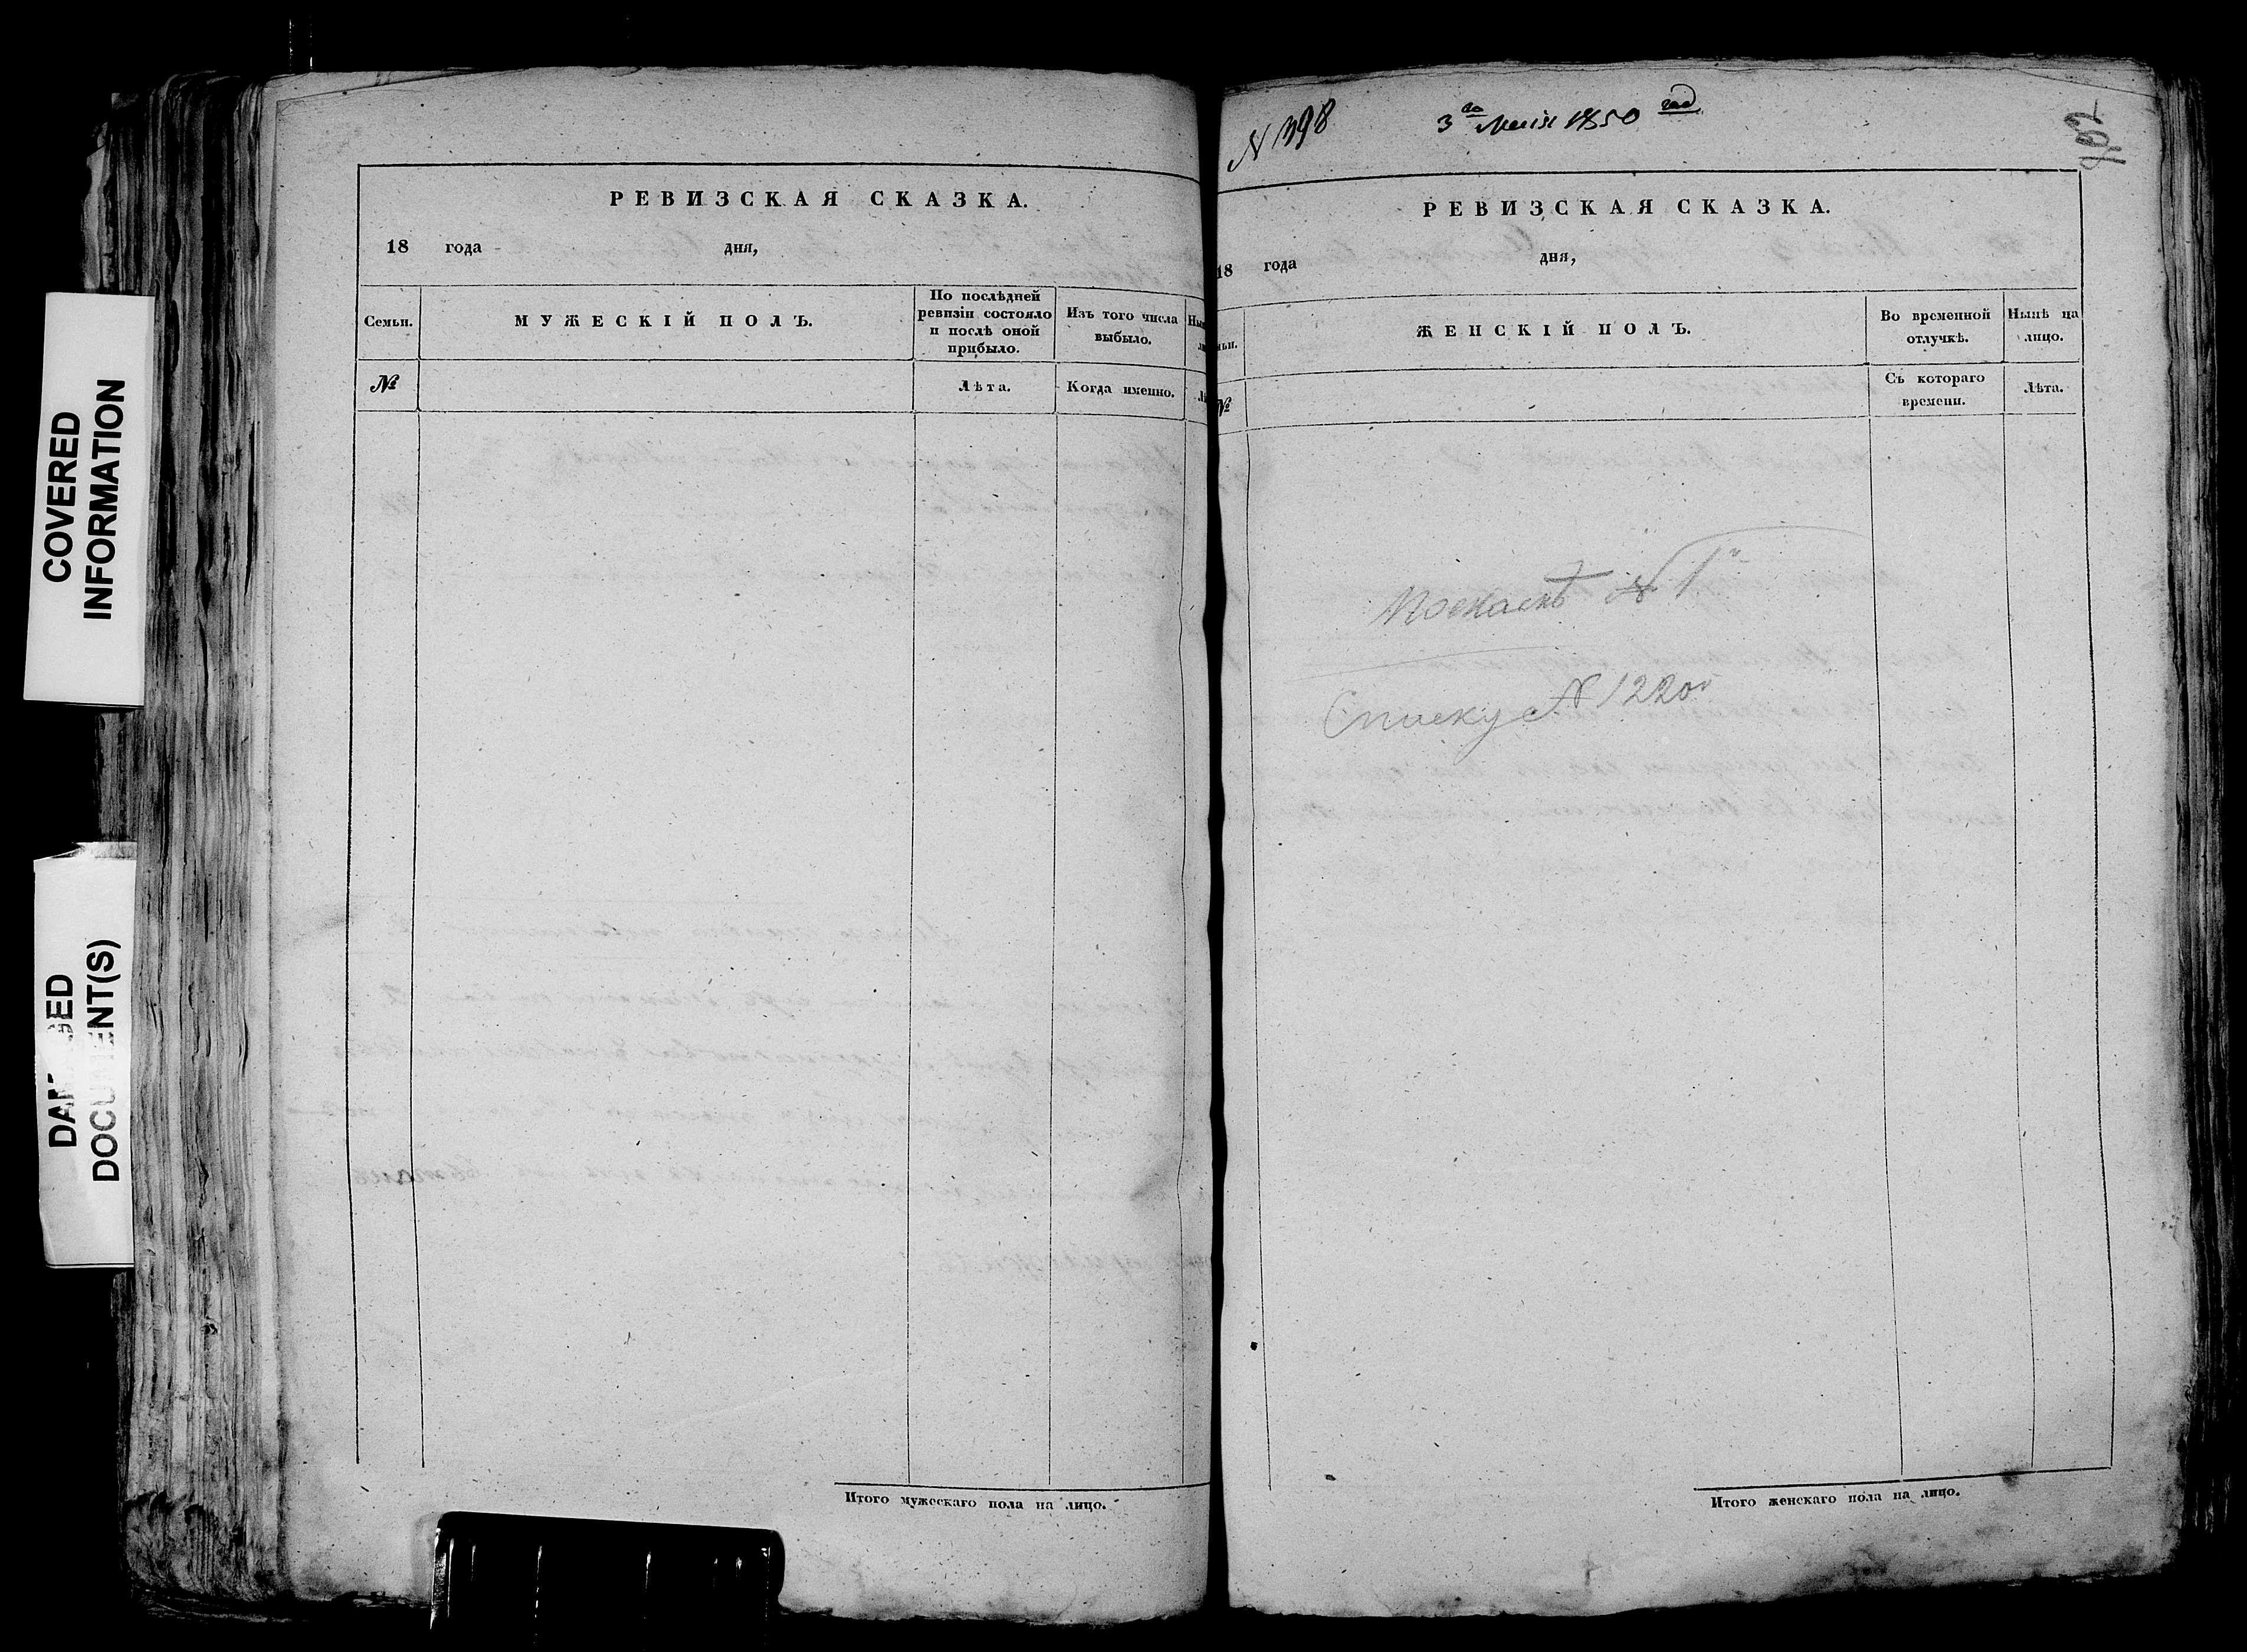 COVERED
INFORMATION
DOCUMENT(S)
РЕВИЗСКАЯ СКАЗКА.
18 года дня,
Семьи.
МУЖЕСКІЙ ПОЛЪ.
По послѣдней
ревизіи состояло
и послѣ оной
прибыло.
Изъ того числа
выбыло.
№
Лѣта.
Когда именно.
Итого мужескаго пола на лицо.
N 398
3го 1850 года
РЕВИЗСКАЯ СКАЗКА.
18 года дня,
ЖЕНСКІЙ ПОЛЪ.
Во временной
отлучкѣ.
Нынѣ на
лицо.
№
Съ котораго
времени.
Лѣта.
N 1й
Списку N 122ой
Итого женскаго пола на лицо.